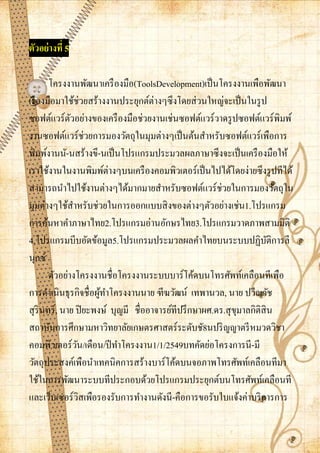 ตัวอย่างที่ 5
โครงงานพัฒนาเครื่องมือ(ToolsDevelopment)เป็นโครงงานเพื่อพัฒนา
เครื่องมือมาใช้ช่วยสร้างงานประยุกต์ต่างๆซึ่งโดยส่วนใหญ่จะเป็นในรูป
ซอฟต์แวร์ตัวอย่างของเครื่องมือช่วยงานเช่นซอฟต์แวร์วาดรูปซอฟต์แวร์พิมพ์
งานซอฟต์แวร์ช่วยการมองวัตถุในมุมต่างๆเป็นต้นสำหรับซอฟต์แวร์เพื่อการ
พิมพ์งานนั-นสร้างขึ-นเป็นโปรแกรมประมวลผลภาษาซึ่งจะเป็นเครื่องมือให้
เราใช้งานในงานพิมพ์ต่างๆบนเครื่องคอมพิวเตอร์เป็นไปได้โดยง่ายซึ่งรูปที่ได้
สามารถนำไปใช้งานต่างๆได้มากมายสำหรับซอฟต์แวร์ช่วยในการมองวัตถุใน
มุมต่างๆใช้สำหรับช่วยในการออกแบบสิ่งของต่างๆตัวอย่างเช่น1.โปรแกรม
การค้นหาคำภาษาไทย2.โปรแกรมอ่านอักษรไทย3.โปรแกรมวาดภาพสามมิติ
4.โปรแกรมบีบอัดข้อมูล5.โปรแกรมประมวลผลคำไทยบนระบบปฏิบัติการลี
นุกซ์
ตัวอย่างโครงงานชื่อโครงงานระบบบาร์โค้ดบนโทรศัพท์เคลื่อนที่เพื่อ
การดำเนินธุรกิจชื่อผู้ทำโครงงานนาย ฑีฆวัฒน์ เทพานวล, นาย ปริญชัย
สุรินทร์, นาย ปิยะพงษ์ บุญมี ชื่ออาจารย์ที่ปรึกษาผศ.ดร.สุขุมาลกิติสิน
สถาบันการศึกษามหาวิทยาลัยเกษตรศาสตร์ระดับชั-นปริญญาตรีหมวดวิชา
คอมพิวเตอร์วัน/เดือน/ปีทำโครงงาน1/1/2549บทคัดย่อโครงการนี-มี
วัตถุประสงค์เพื่อนำเทคนิคการสร้างบาร์โค้ดบนจอภาพโทรศัพท์เคลื่อนที่มา
ใช้ในการพัฒนาระบบที่ประกอบด้วยโปรแกรมประยุกต์บนโทรศัพท์เคลื่อนที่
และเว็บเซอร์วิสเพื่อรองรับการทำงานดังนี-คือการขอรับใบแจ้งค่าบริการการ